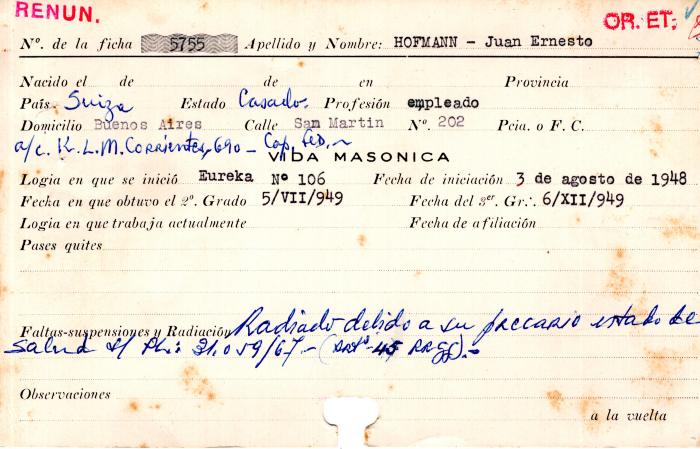 RENUN.
OR. ET.
Nº. de la ficha 5755 Apellido y Nombre: HOFMANN - Juan Ernesto
Nacido el de de en Provincia
País Suiza Estado Casado. Profesión empleado
Domicilio Buenos Aires Calle San Martin Nº. 202 Pcia. o F. C.
a/c. K.L.M. Corrientes, 690 - Cap. Fed. -
VIDA MASONICA
Logia en que se inició Eureka Nº 106 Fecha de iniciación 3 de agosto de 1948
Fecha en que obtuvo el 2º. Grado 5/VII/949 Fecha del 3er. Gr.: 6/XII/949
Logia en que trabaja actualmente Fecha de afiliación
Pases quites
Faltas-suspensiones y Radiación Radiado debido a su precario estado de
salud s/ Pl: 31.059/67 - (Artº 45 RRGG). -
Observaciones
a la vuelta